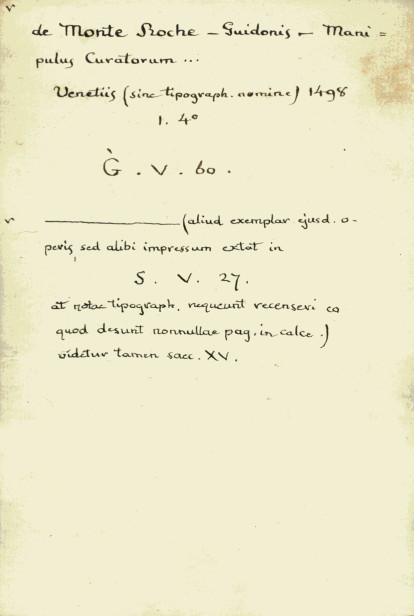 v
de Monte Roche - Guidonis - Mani =
pulus Curatorum ...
Venetiis (sine tipograph. nomine) 1498
1. 4º
G̀. V. 60.
v ————— (aliud exemplar ejusd. o-
peris sed alibi impressum extat in
S. V. 27.
at notae tipograph. nequeunt recenseri eo
quod desunt nonnullae pag. in calce.)
videtur tamen saec. XV.